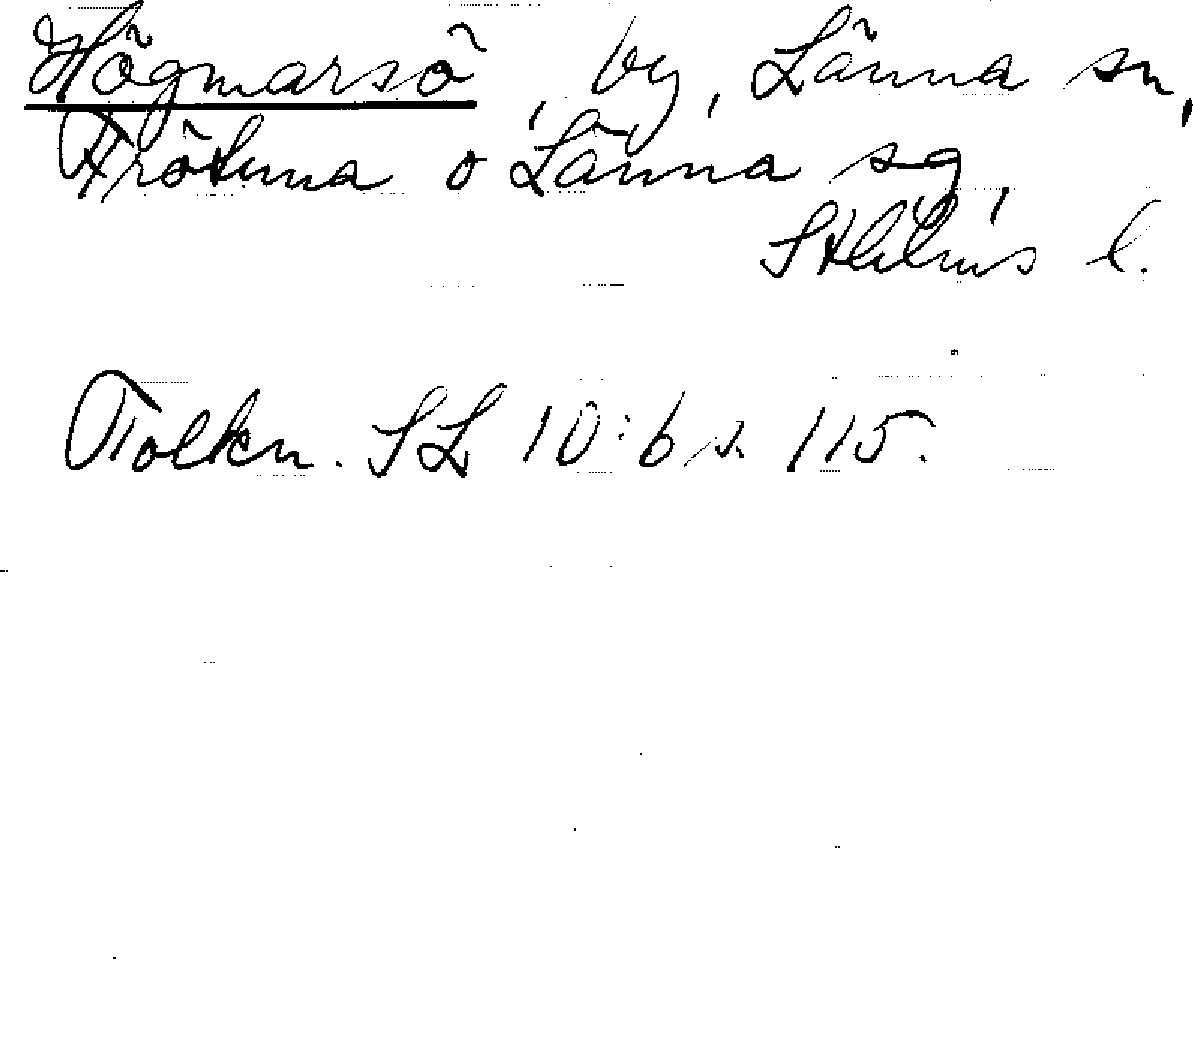 Högmarsö, by, Länna sn,
Frötuna o Länna sg,
Sthlms l.
Tolkn. SL 10:6 s. 115.